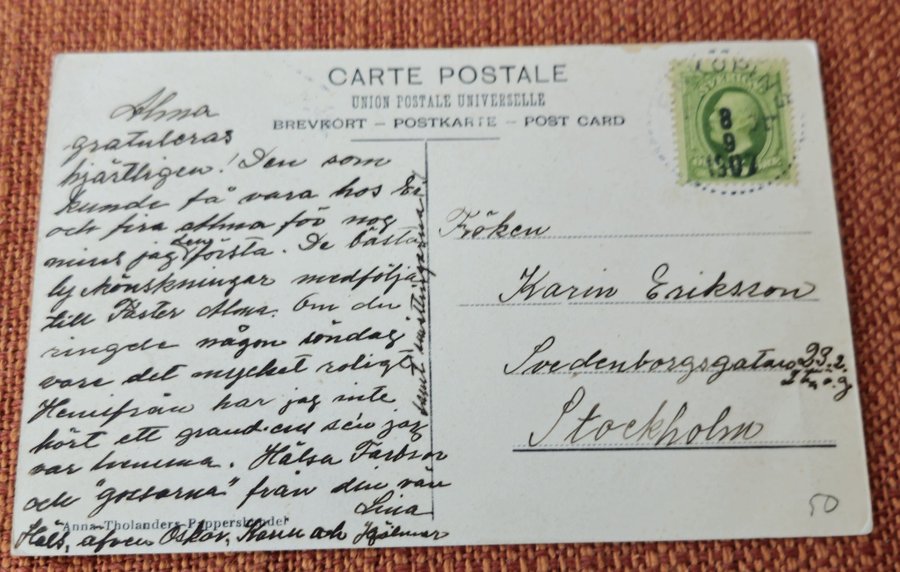 CARTE POSTALE
UNION POSTALE UNIVERSELLE
BREVKORT – POSTKARTE – POST CARD
8
9
1907
Alma
gratuleras
hjärtligen! Den som
kunde få vara hos Er
och fira Alma för nog
minns jag den första. De bästa
lyckönskningar medfölja
till Faster Alma. Om du
ringde någon söndag
vore det mycket roligt
Hemifrån har jag inte
hört ett grand ens sen jag
var hemma. Hälsa Farbror
och "gossarna" från din vän
Lina
Häls. äfven Oskar, Karin och Hjälmar
samt
Anna Tholanders Pappershandel
Fröken
Karin Eriksson
Svedenborgsgatan 23
Stockholm
50